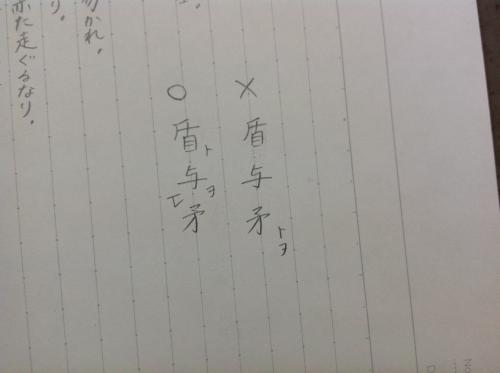 ×盾与矛トヲ
○盾ト与ヲエ矛
勿かれ。
り。
亦た走ぐるなり。